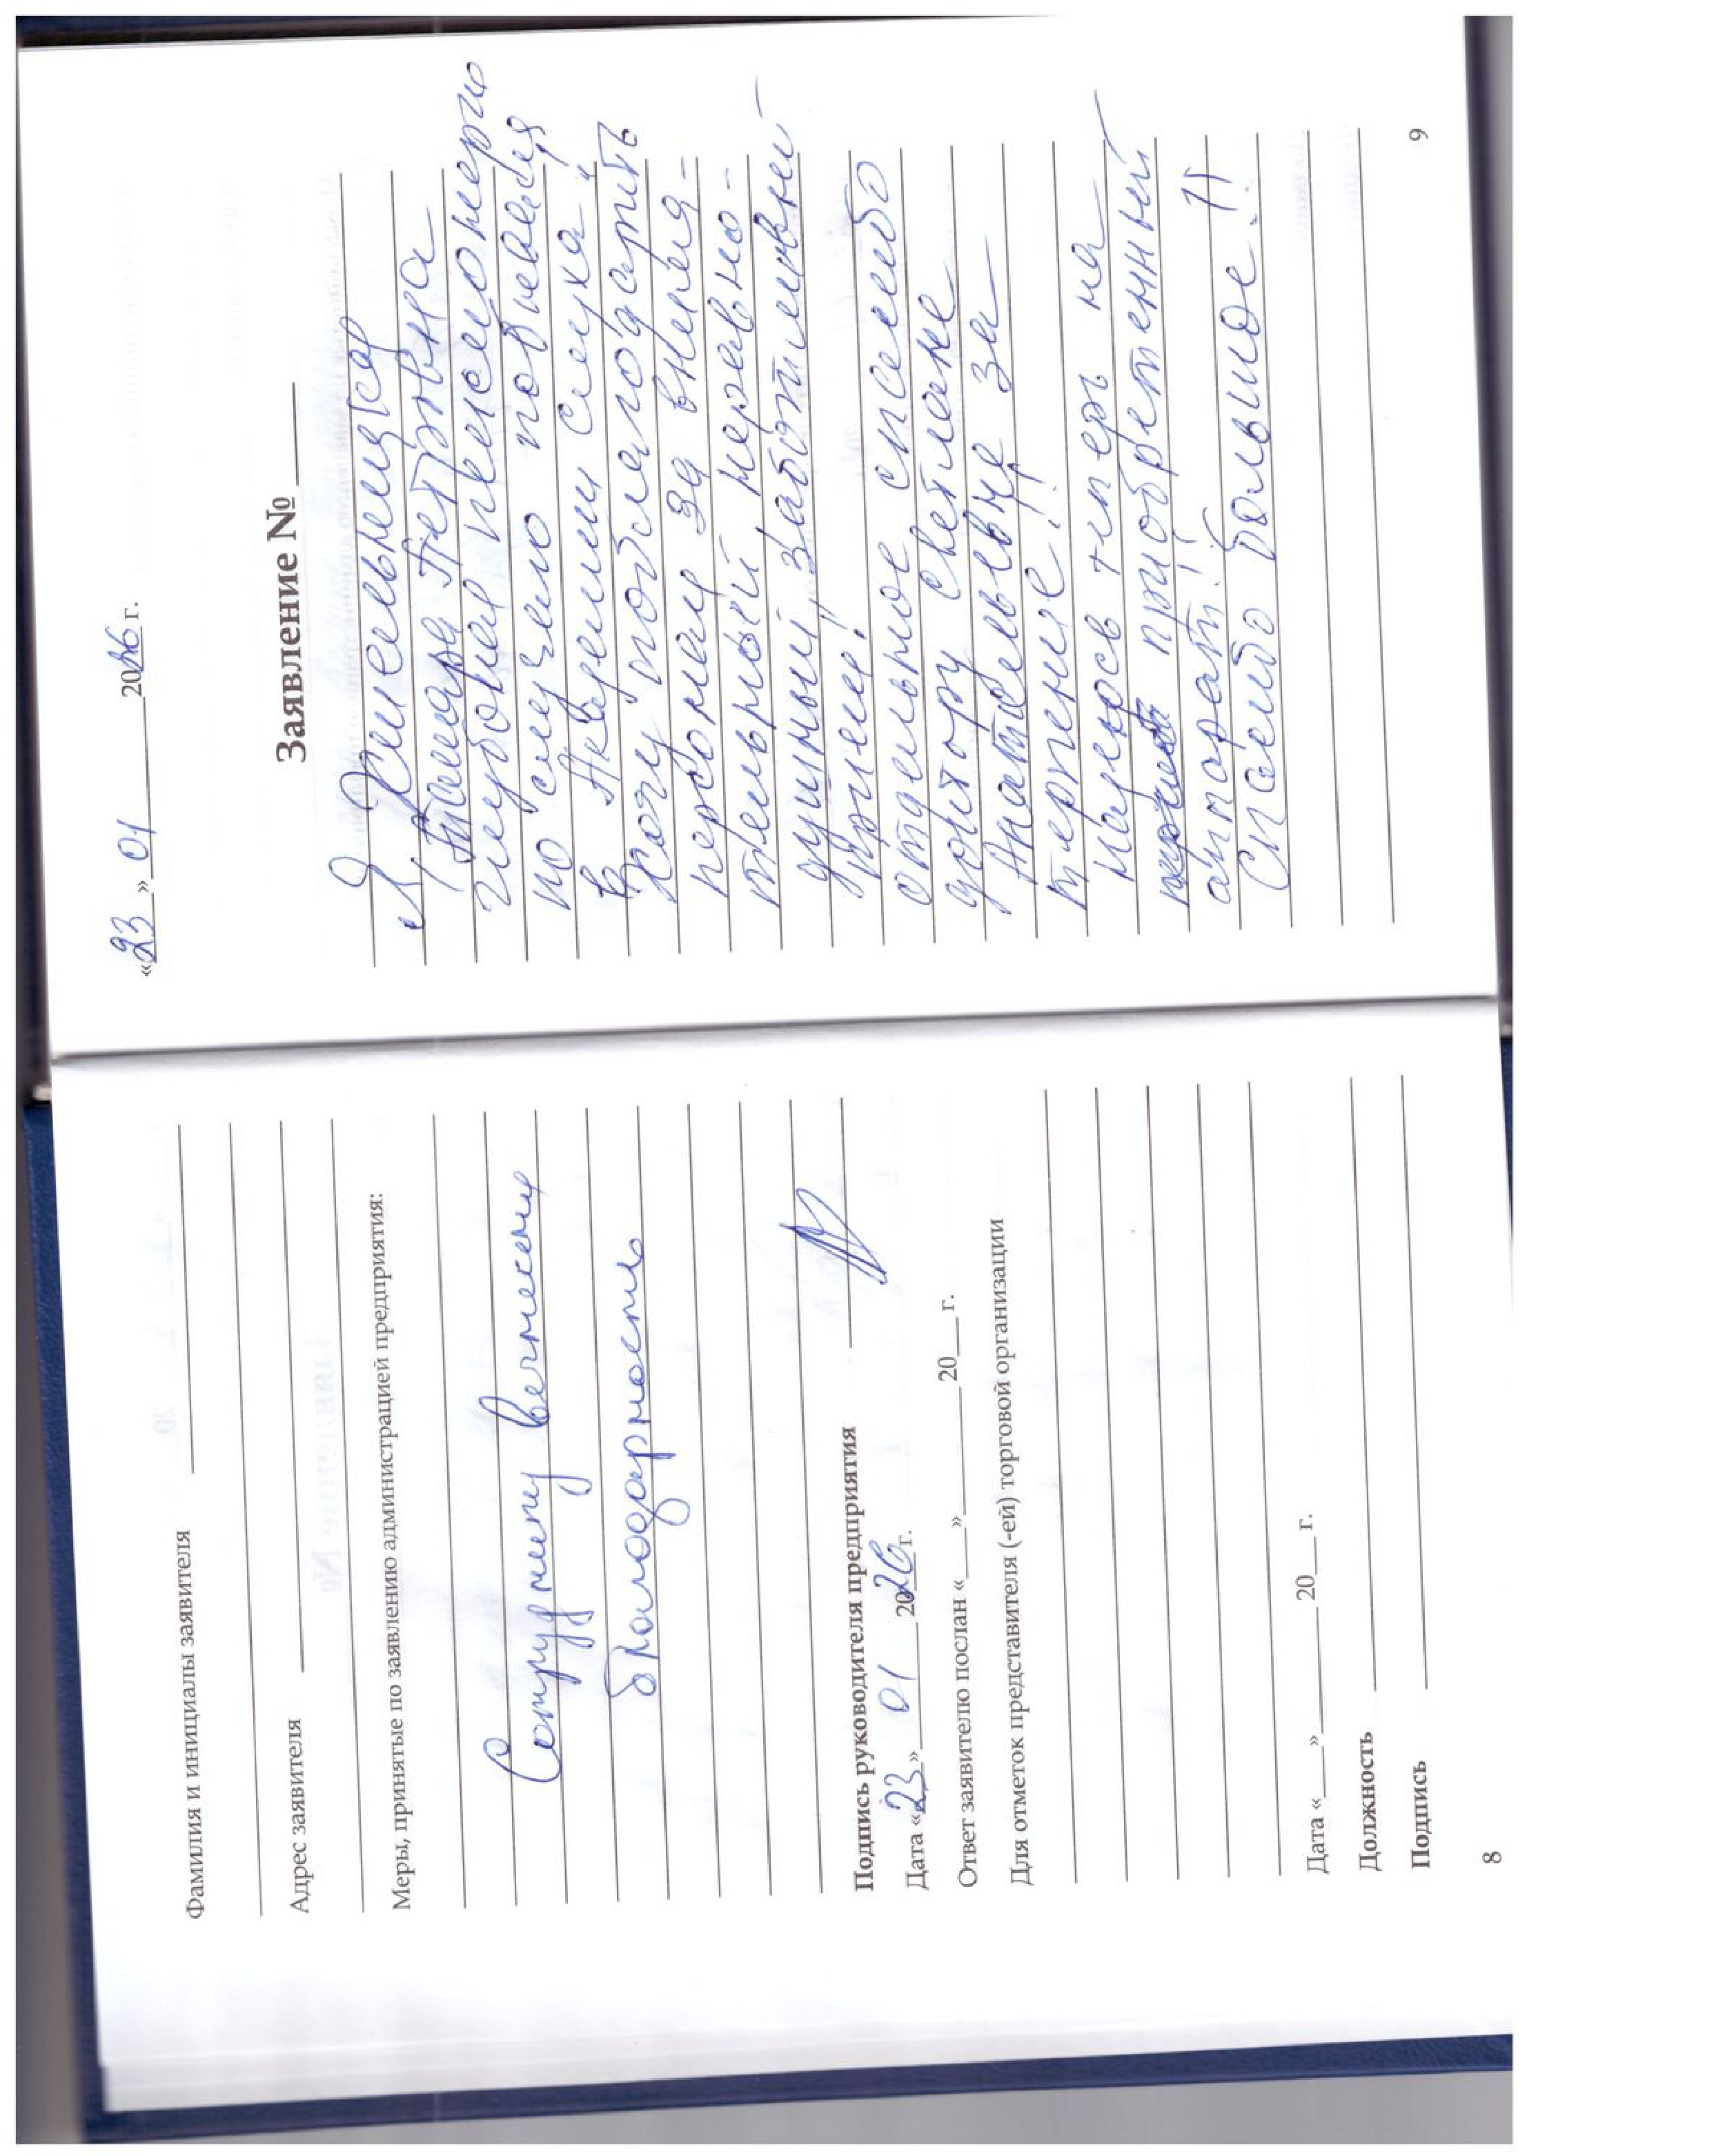 Фамилия и инициалы заявителя
Адрес заявителя
Меры, принятые по заявлению администрацией предприятия:
Сотруднику вынесена
благодарность
Подпись руководителя предприятия
Дата «23» 01 2026 г.
Ответ заявителю послан «___»______20___г.
Для отметок представителя (-ей) торговой организации
Дата «___»______20___г.
Должность
Подпись
8
«23» 01 2026 г.
Заявление №
Я, Хмельницкая
Тамара Петровна
глубокая пенсионерка
по слуху побывала
в "Академии слуха"
Хочу поблагодарить
персонал за внима-
тельный, неравно-
душный, заботливый
приём!
отдельное спасибо
доктору Светлане
Анатольевне за
терпение!!
Надеюсь теперь на
приобретенный
аппарат!!
Спасибо большое!!
9